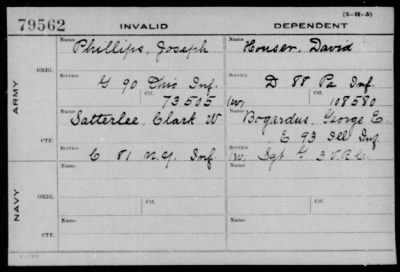 (3-H-5)
79562 INVALID DEPENDENT
Name Phillips, Joseph Name Houser, David
ORIG.
Service G 90 Ohio Inf. Service D 88 Pa Inf.
Ctf. 73505 (W) Ctf. 108580
ARMY
Name Satterlee, Clark W Name Bogardus, George E.
E 93 Ill Inf.
CTF.
Service C 81 N.Y. Inf Service (W) Sgt G 3 V.R.C.
Name Name
ORIG.
Ctf. Ctf.
NAVY
Name Name
CTF.